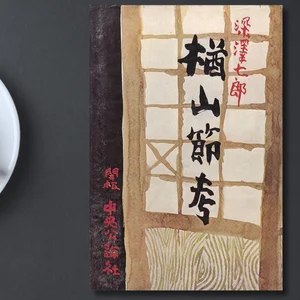 深澤七郎
楢山節考
開板
中央公論社